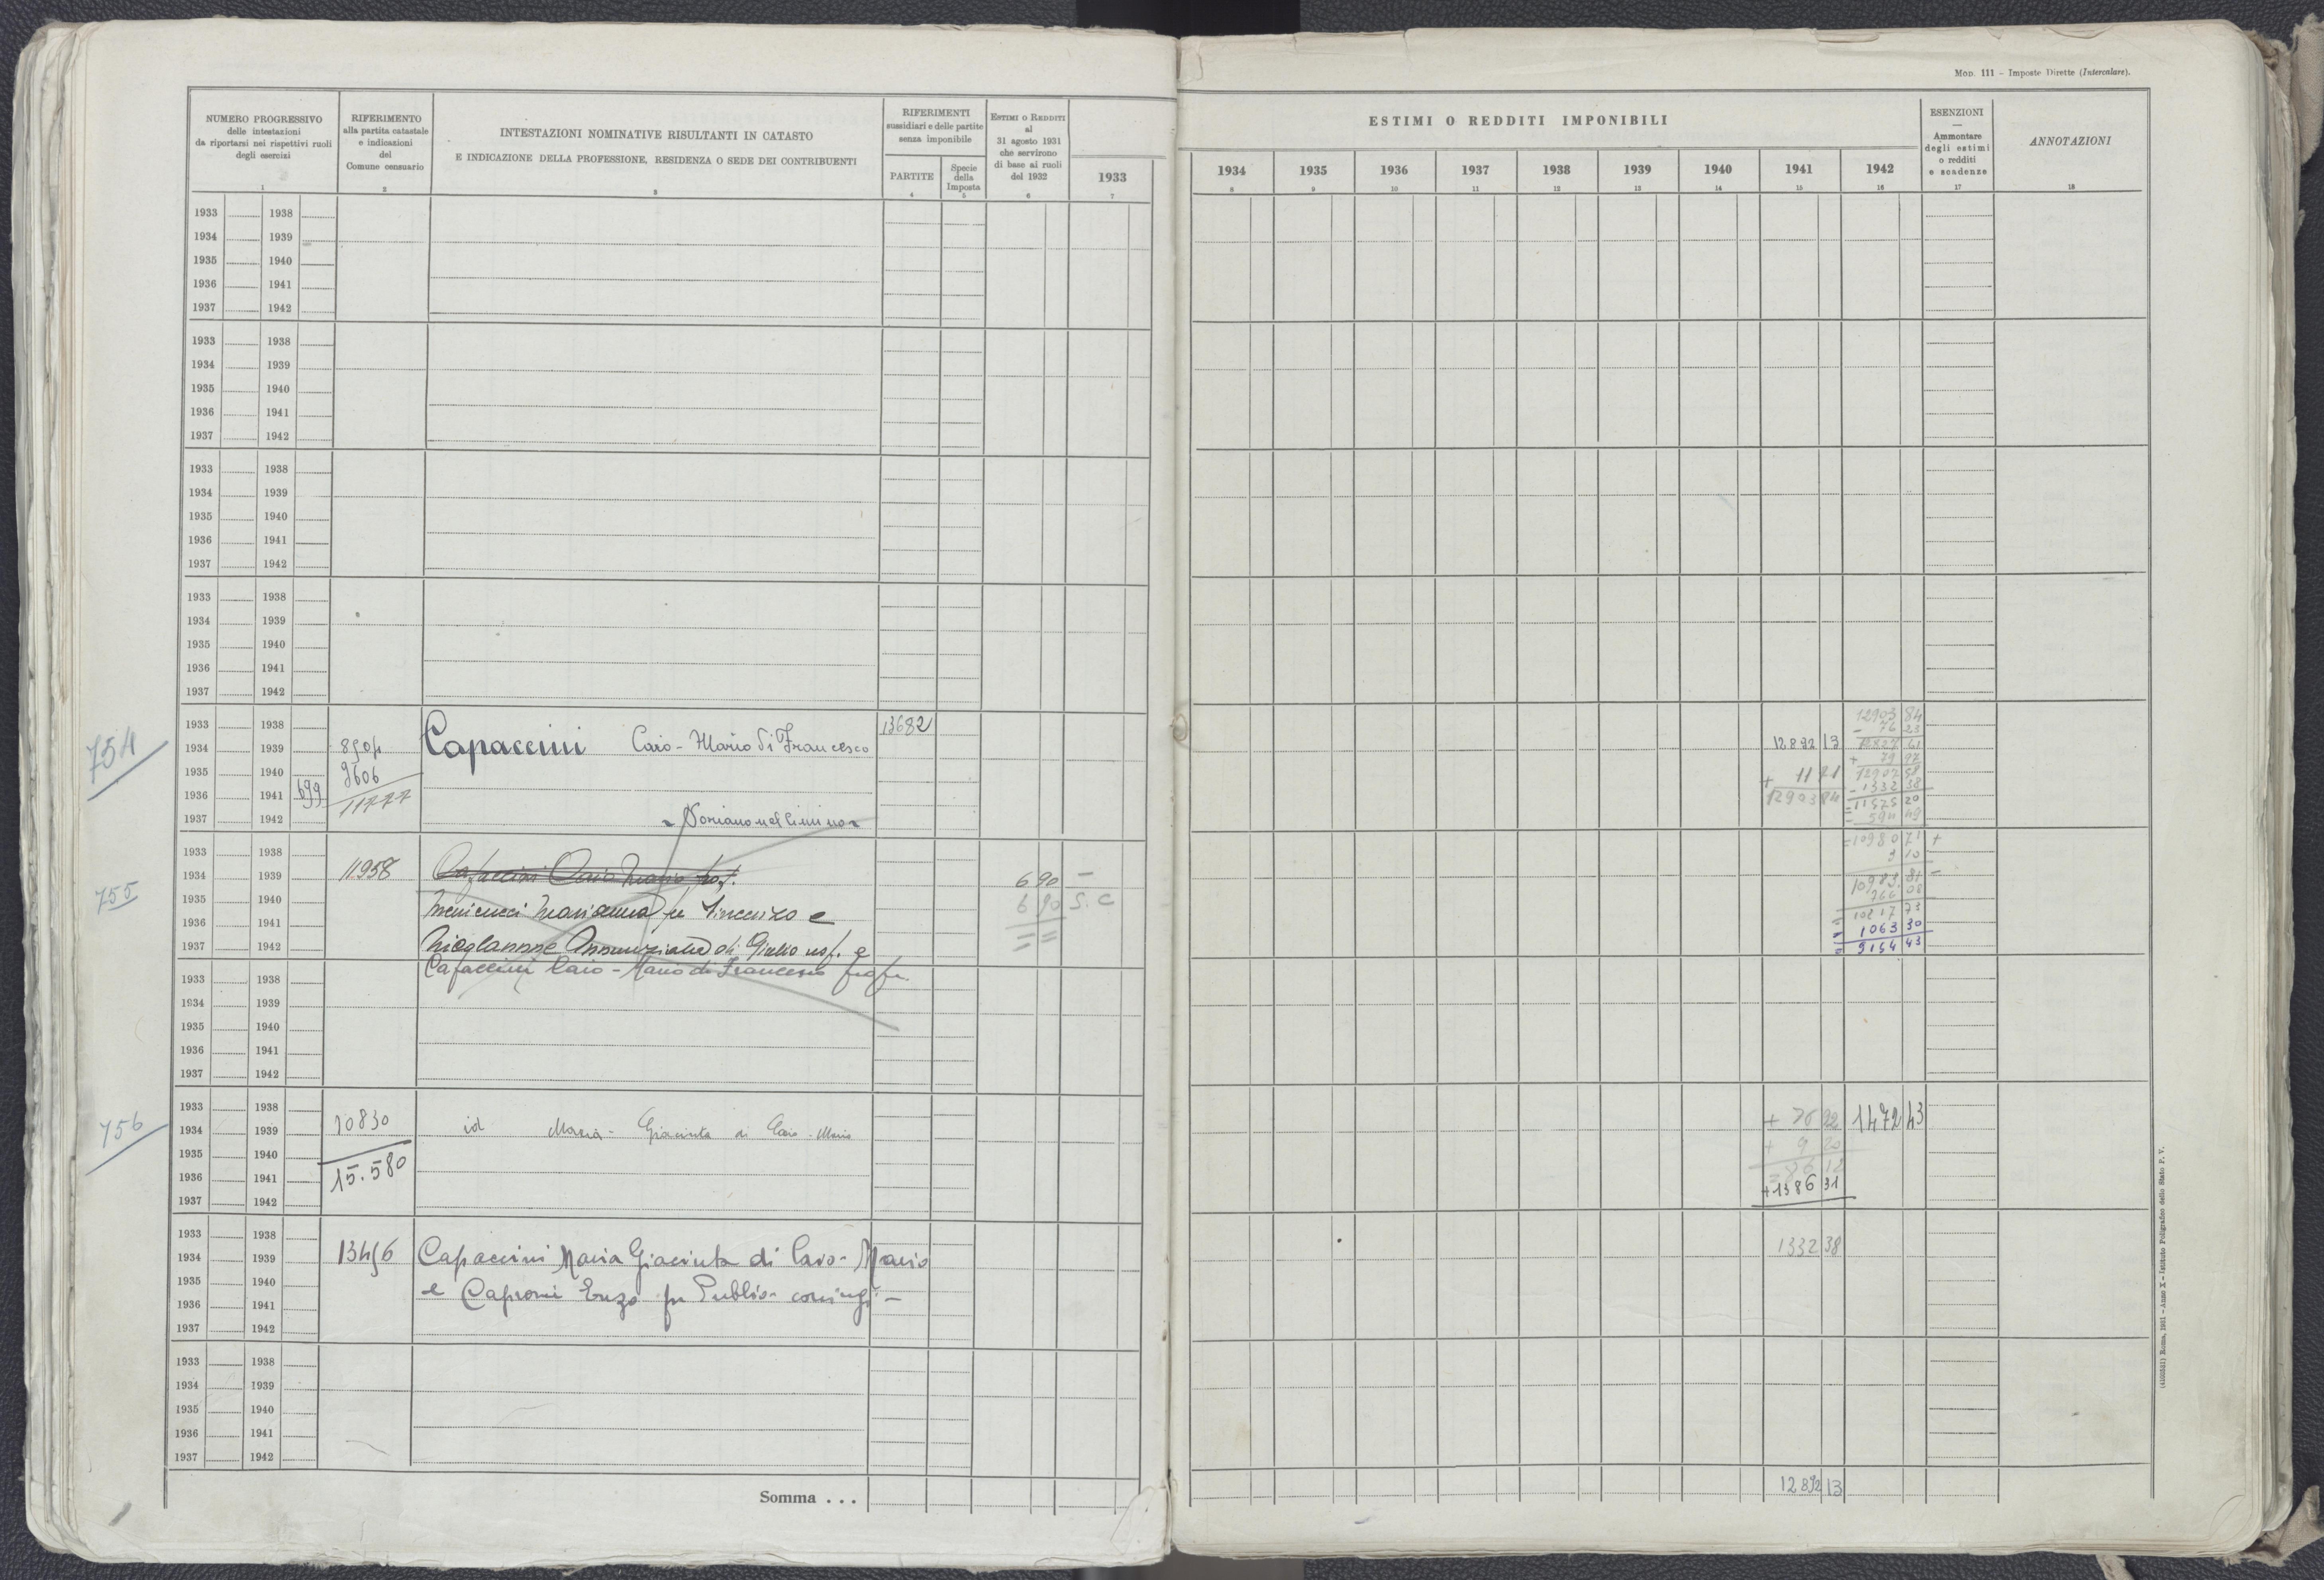 Mod. 111 – Imposte Dirette (Intercalare).
NUMERO PROGRESSIVO
delle intestazioni
da riportarsi nei rispettivi ruoli
degli esercizi
1
RIFERIMENTO
alla partita catastale
e indicazioni
del
Comune censuario
2
INTESTAZIONI NOMINATIVE RISULTANTI IN CATASTO
E INDICAZIONE DELLA PROFESSIONE, RESIDENZA O SEDE DEI CONTRIBUENTI
3
RIFERIMENTI
sussidiari e delle partite
senza imponibile
PARTITE
4
Specie
della
Imposta
5
ESTIMI O REDDITI
al
31 agosto 1931
che servirono
di base ai ruoli
del 1932
6
1933
7
ESTIMI O REDDITI IMPONIBILI
1934 1935 1936 1937 1938 1939 1940 1941 1942
8 9 10 11 12 13 14 15 16
ESENZIONI
—
Ammontare
degli estimi
o redditi
e scadenze
17
ANNOTAZIONI
18
1933 1938
1934 1939
1935 1940
1936 1941
1937 1942
1933 1938
1934 1939
1935 1940
1936 1941
1937 1942
1933 1938
1934 1939
1935 1940
1936 1941
1937 1942
1933 1938
1934 1939
1935 1940
1936 1941
1937 1942
754
1933 1938 13682 12903 84
1934 1939 8504 Capaccini Caio - Mario di Francesco 12892 13 - 76 23
12827 61
1935 1940 9606 + 11 71 + 79 97
1936 1941 699 11777 12903 84 12907 58
- 1332 38
11575 20
1937 1942 Soriano nel Cimino - 594 49
755
1933 1938 = 10980 71 +
3 10
1934 1939 11958 Capaccini Caio Mario 690 — 10983 81 -
1935 1940 Menicucci Marianna fu Vincenzo e 690 S. C 766 08
1936 1941 = 10217 73
= 1063 30
1937 1942 Annunziata di Giulio usf. e = 9154 43
Capaccini Caio - Mario di Francesco
1933 1938
1934 1939
1935 1940
1936 1941
1937 1942
756
1933 1938 10830 + 76 92 1472 43
1934 1939 id Maria - Giacinta di Caio - Mario + 9 20
1935 1940 86 12
1936 1941 15.580 + 1386 31
1937 1942
1933 1938 1332 38
1934 1939 13456 Capaccini Maria Giacinta di Caio - Mario
1935 1940 e Caproni Enzo fu Publio coniugi -
1936 1941
1937 1942
1933 1938
1934 1939
1935 1940
1936 1941
1937 1942
Somma . . . 12892 13